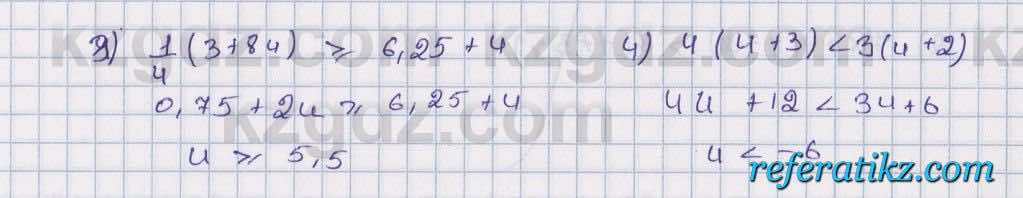 3) 1/4 (3+8u) ⩾ 6,25 + u
0,75 + 2u ⩾ 6,25 + u
u ⩾ 5,5
4) 4 (u+3) < 3(u+2)
4u + 12 < 3u + 6
u < -6
kzgdz.com
referatikz.com